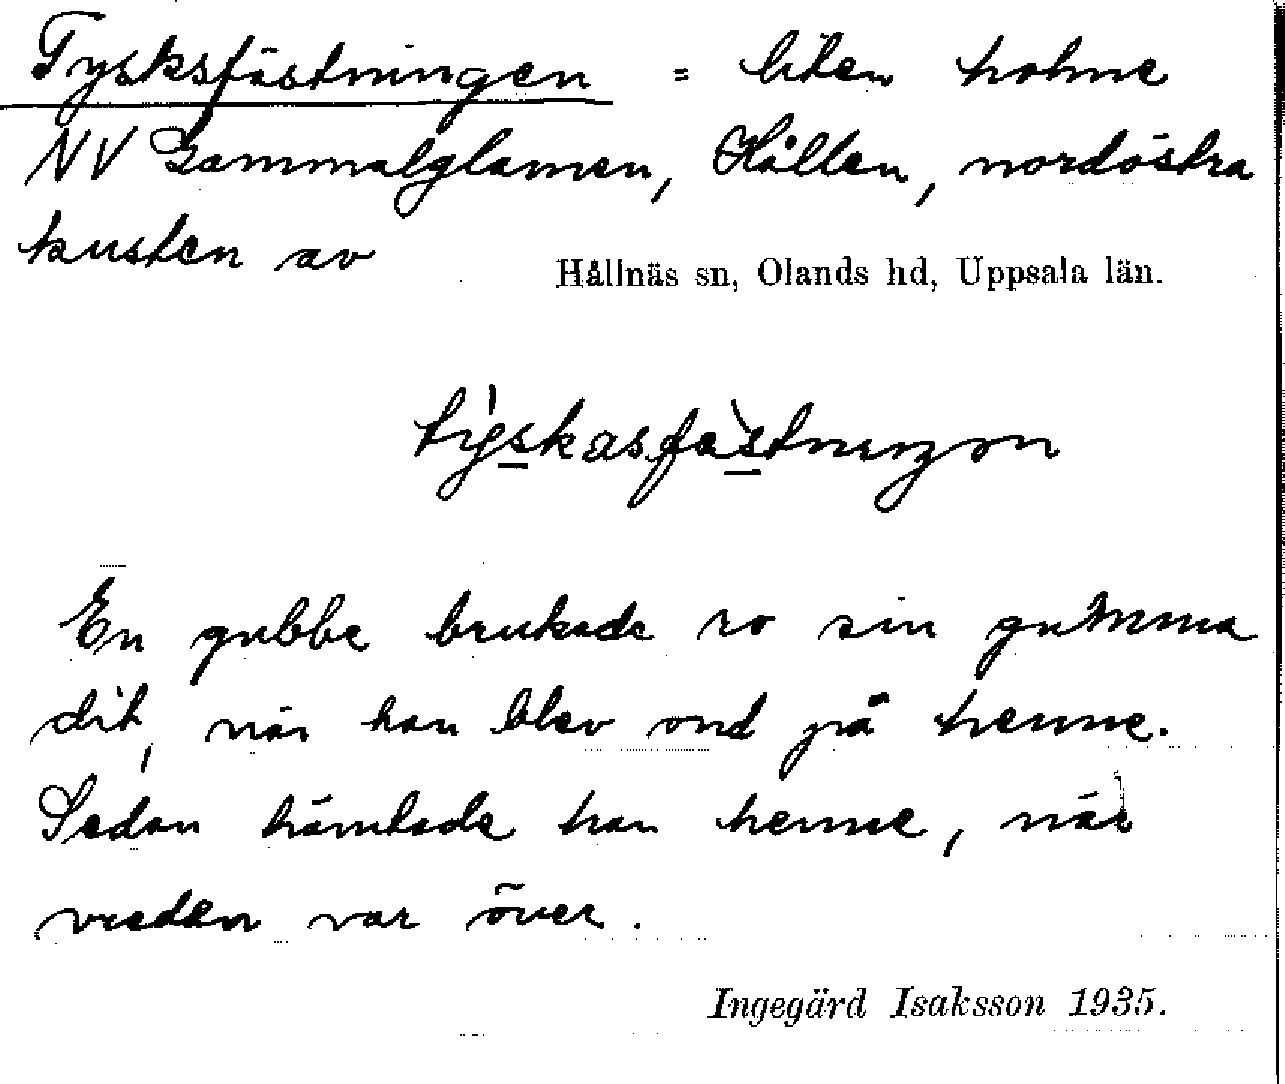 Tysksfästningen = liten holme
NV Gammalglamen, Hållen, nordöstra
kusten av
Hållnäs sn, Olands hd, Uppsala län.
En gubbe brukade ro sin gumma
dit, när han blev ond på henne.
Sedan hämtade han henne, när
vreden var över.
Ingegärd Isaksson 1935.